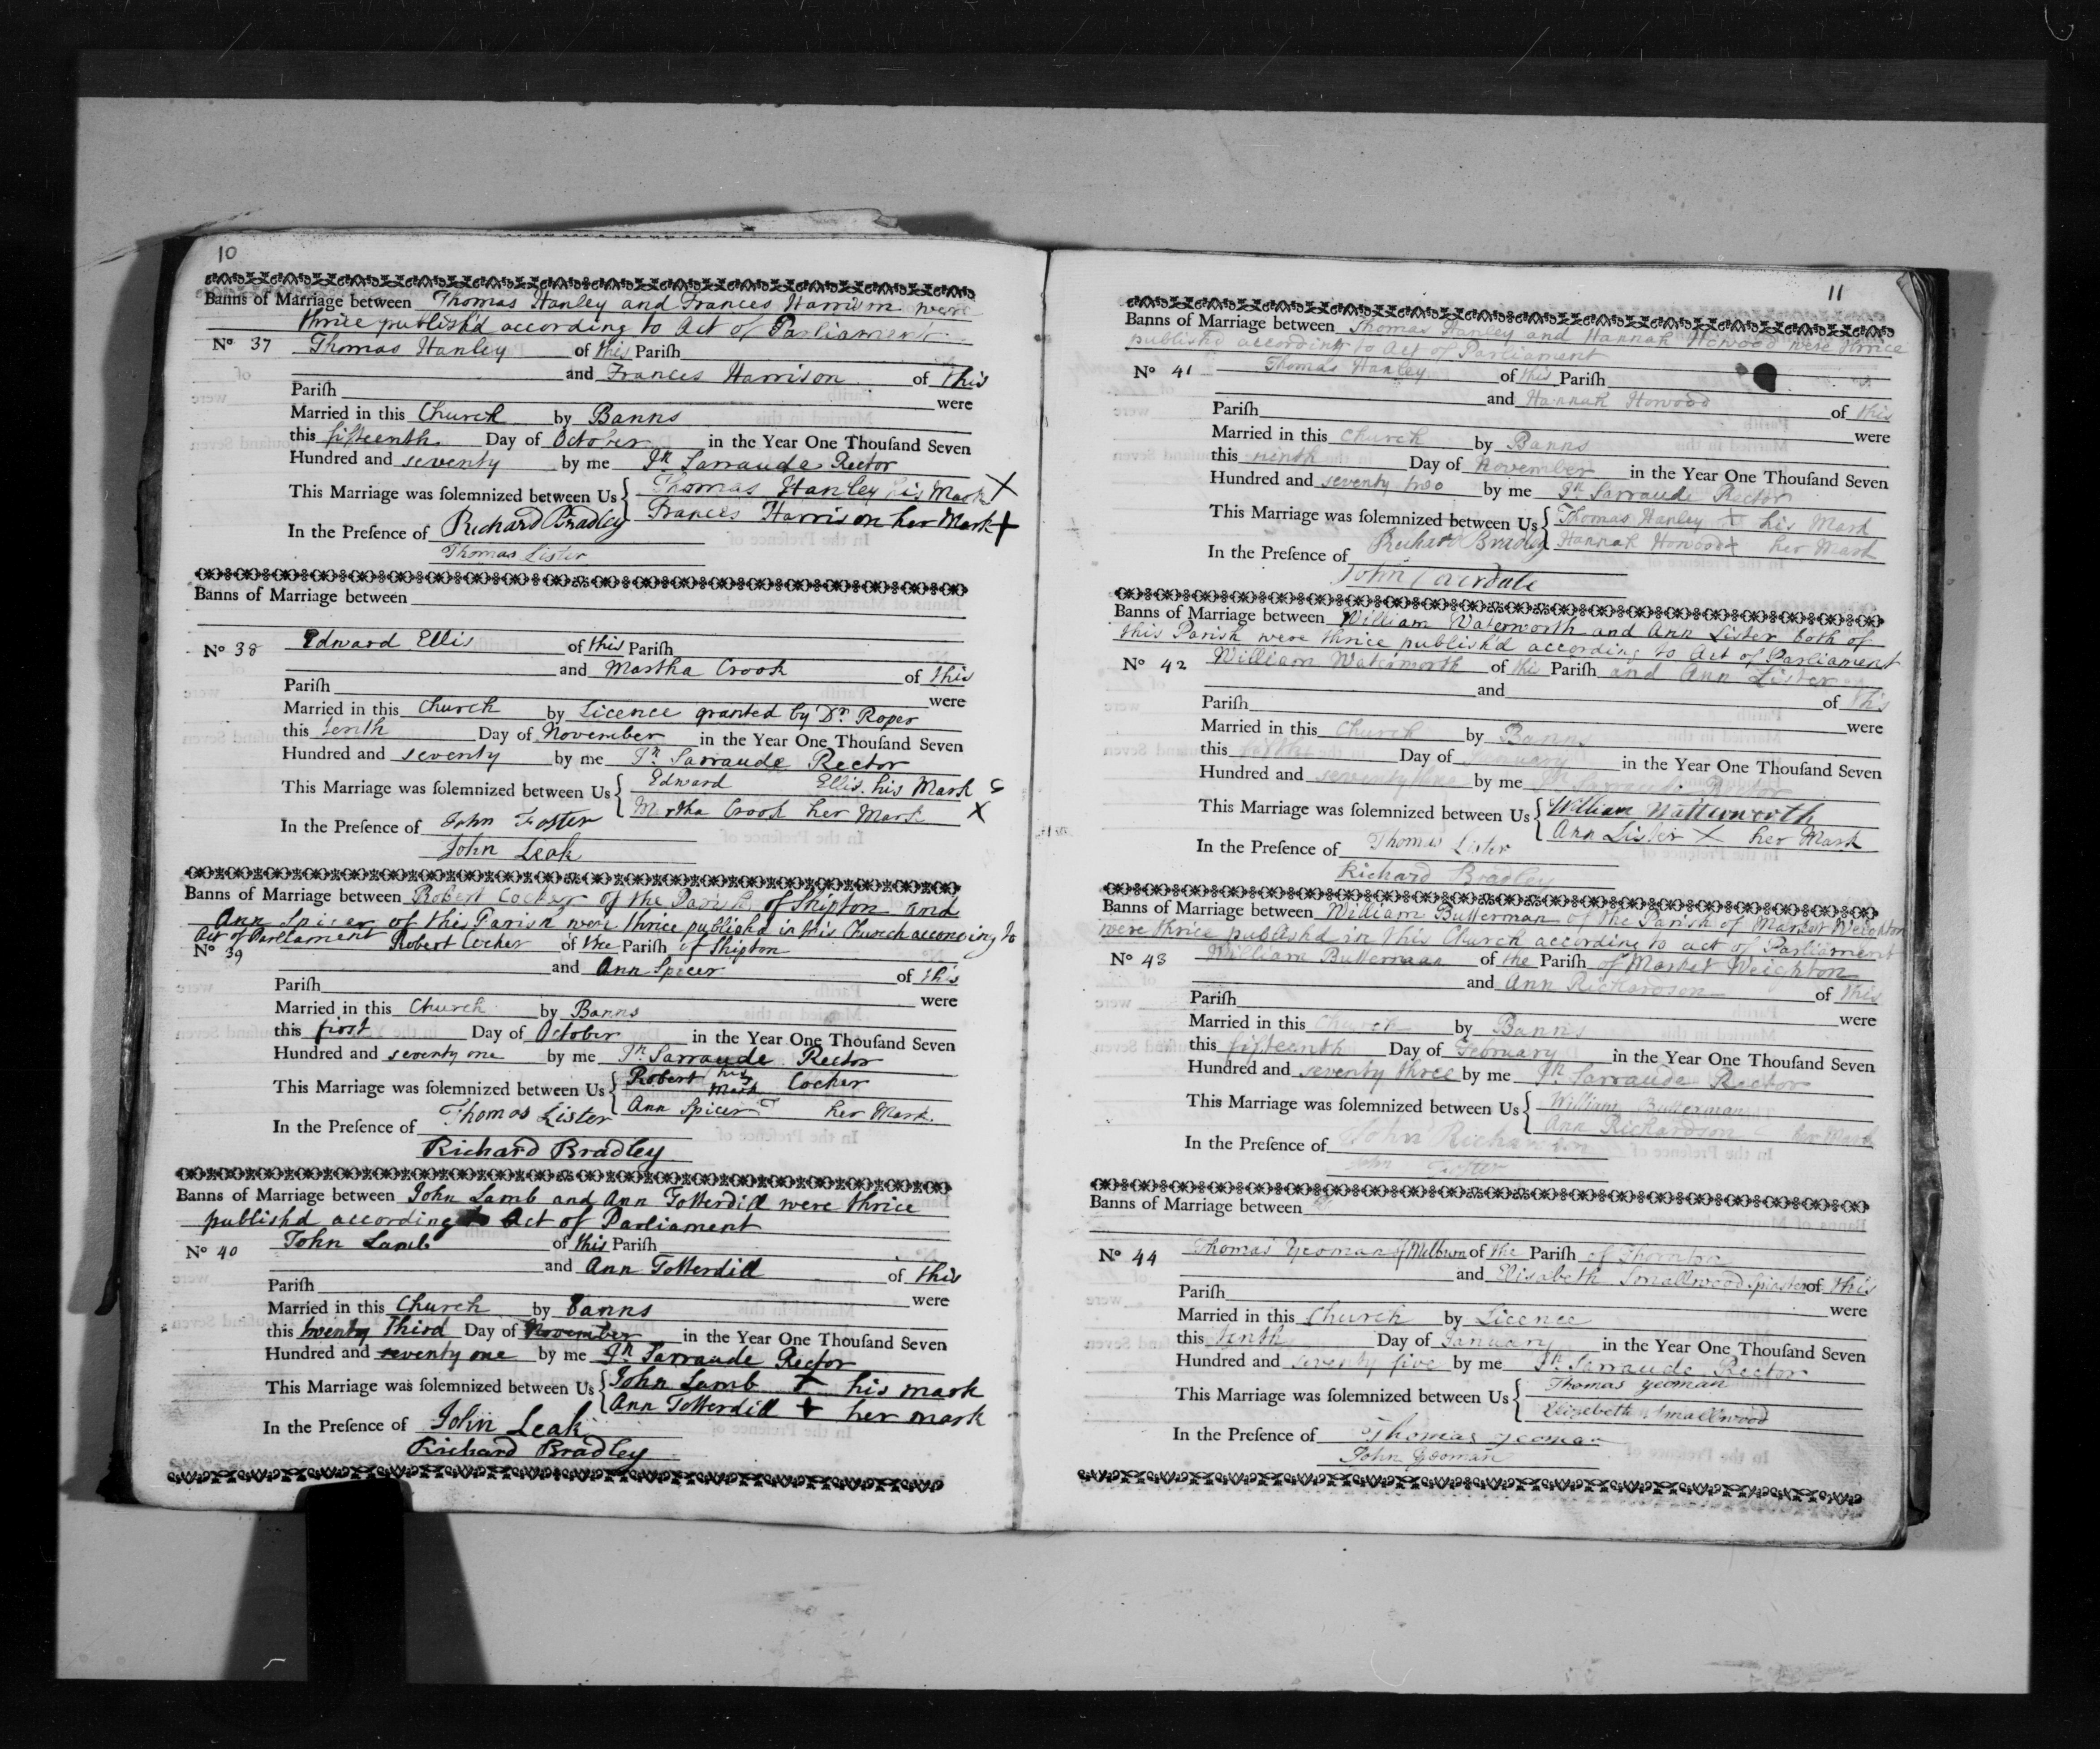 10
Banns of Marriage between Thomas Hanley and Frances Harrison were
thrice publish'd according to Act of Parliament
No 37 Thomas Hanley of this Parish
and Frances Harrison of this
Parish were
Married in this Church by Banns
this fifteenth Day of October in the Year One Thouſand Seven
Hundred and seventy by me Jn Sarraude Rector
This Marriage was ſolemnized between Us Thomas Hanley his Mark X
Frances Harrison her Mark +
In the Preſence of Richard Bradley
Thomas Lister
Banns of Marriage between
No 38 Edward Ellis of this Pariſh
and Martha Crook of this
Pariſh were
Married in this Church by Licence granted by Dr Roper
this tenth Day of November in the Year One Thouſand Seven
Hundred and seventy by me Jn Sarraude Rector
This Marriage was ſolemnized between Us Edward Ellis his Mark
Martha Crook her Mark X
In the Preſence of John Foster
John Leak
Banns of Marriage between Robert Cocker of the Parish of Shipton and
Ann Spicer of this Parish were thrice publishd in this Church according to
Act of Parliament
No 39 Robert Cocker of the Pariſh of Shipton
and Ann Spicer of this
Pariſh were
Married in this Church by Banns
this first Day of October in the Year One Thouſand Seven
Hundred and seventy one by me Jn Sarraude Rector
This Marriage was ſolemnized between Us Robert his Mark Cocker
Ann Spicer her Mark
In the Preſence of Thomas Lister
Richard Bradley
Banns of Marriage between John Lamb and Ann Totterdill were thrice
publish'd according to Act of Parliament
No 40 John Lamb of this Pariſh
and Ann Totterdill of this
Pariſh were
Married in this Church by Banns
this twenty Third Day of November in the Year One Thouſand Seven
Hundred and seventy one by me Jn Sarraude Rector
This Marriage was ſolemnized between Us John Lamb + his mark
Ann Totterdill + her mark
In the Preſence of John Leak
Richard Bradley
11
Banns of Marriage between Thomas Hanley and Hannah Howood were thrice
publish'd according to Act of Parliament
No 41 Thomas Hanley of this Pariſh
and Hannah Howood of this
Pariſh were
Married in this Church by Banns
this ninth Day of November in the Year One Thouſand Seven
Hundred and seventy two by me Jn Sarraude Rector
This Marriage was ſolemnized between Us Thomas Hanley X his Mark
Hannah Howood + her Mark
In the Preſence of Richard Bradley
John
Banns of Marriage between William Waterworth and Ann Lister both of
this Parish were thrice publish'd according to Act of Parliament
No 42 William Waterworth of this Pariſh and Ann Lister
and of this
Pariſh were
Married in this Church by Banns
this Day of January in the Year One Thouſand Seven
Hundred and seventy three by me Jn Sarraude Rector
This Marriage was ſolemnized between Us William Watterworth
Ann Lister X her Mark
In the Preſence of Thomas Lister
Richard Bradley
Banns of Marriage between William Butterman of the Parish of Market Weighton
were thrice publishd in this Church according to act of Parliament
No 43 William Butterman of the Pariſh of Market Weighton
and Ann Richardson of this
Pariſh were
Married in this Church by Banns
this fifteenth Day of February in the Year One Thouſand Seven
Hundred and seventy three by me Jn Sarraude Rector
This Marriage was ſolemnized between Us William Butterman
Ann Richardson her Mark
In the Preſence of John Richardson
John Foster
Banns of Marriage between
No 44 Thomas Yeoman of Melburn of the Pariſh of Thornton
and Elisabeth Smallwood Spinster of this
Pariſh were
Married in this Church by Licence
this tenth Day of January in the Year One Thouſand Seven
Hundred and seventy five by me Jn Sarraude Rector
This Marriage was ſolemnized between Us Thomas Yeoman
Elizebeth Smallwood
In the Preſence of Thomas Yeoman
John Yeoman